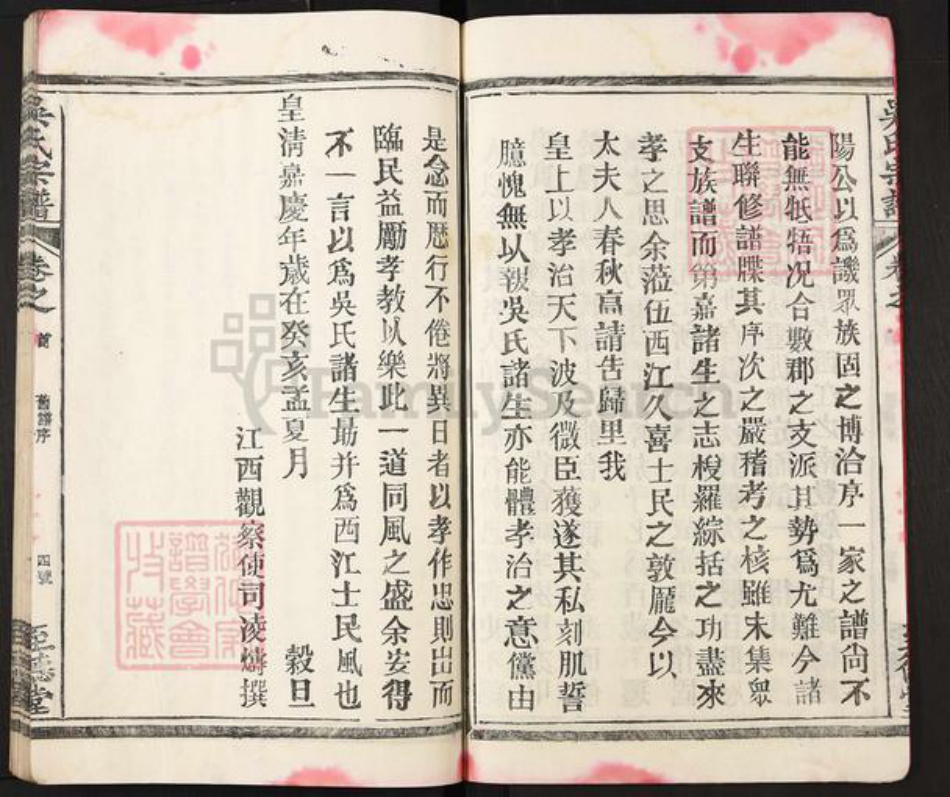 陽公以爲譏眾族固之博洽序一家之譜尙不
能無牴牾况合數郡之支派其勢爲尤難今諸
生聯修譜牒其序次之嚴稽考之核雖未集眾
支族譜而第嘉諸生之志梭羅綜括之功盡來
孝之思余蒞伍西江久喜士民之敦龐今以
太夫人春秋高請吿歸里我
皇上以孝治天下波及微臣獲遂其私刻肌誓
臆愧無以報吳氏諸生亦能體孝治之意儻由
是念而厯行不倦將異日者以孝作忠則出而
臨民益勵孝教以樂此一道同風之盛余安得
不一言以爲吳氏諸生勗并爲西江士民風也
皇清嘉慶年歲在癸亥孟夏月 穀旦
江西觀察使司淩 撰
吳氏宗譜 卷之 首 舊譜序 四號 至德堂
吳氏宗譜 卷之
FamilySearch
譜學會
收藏